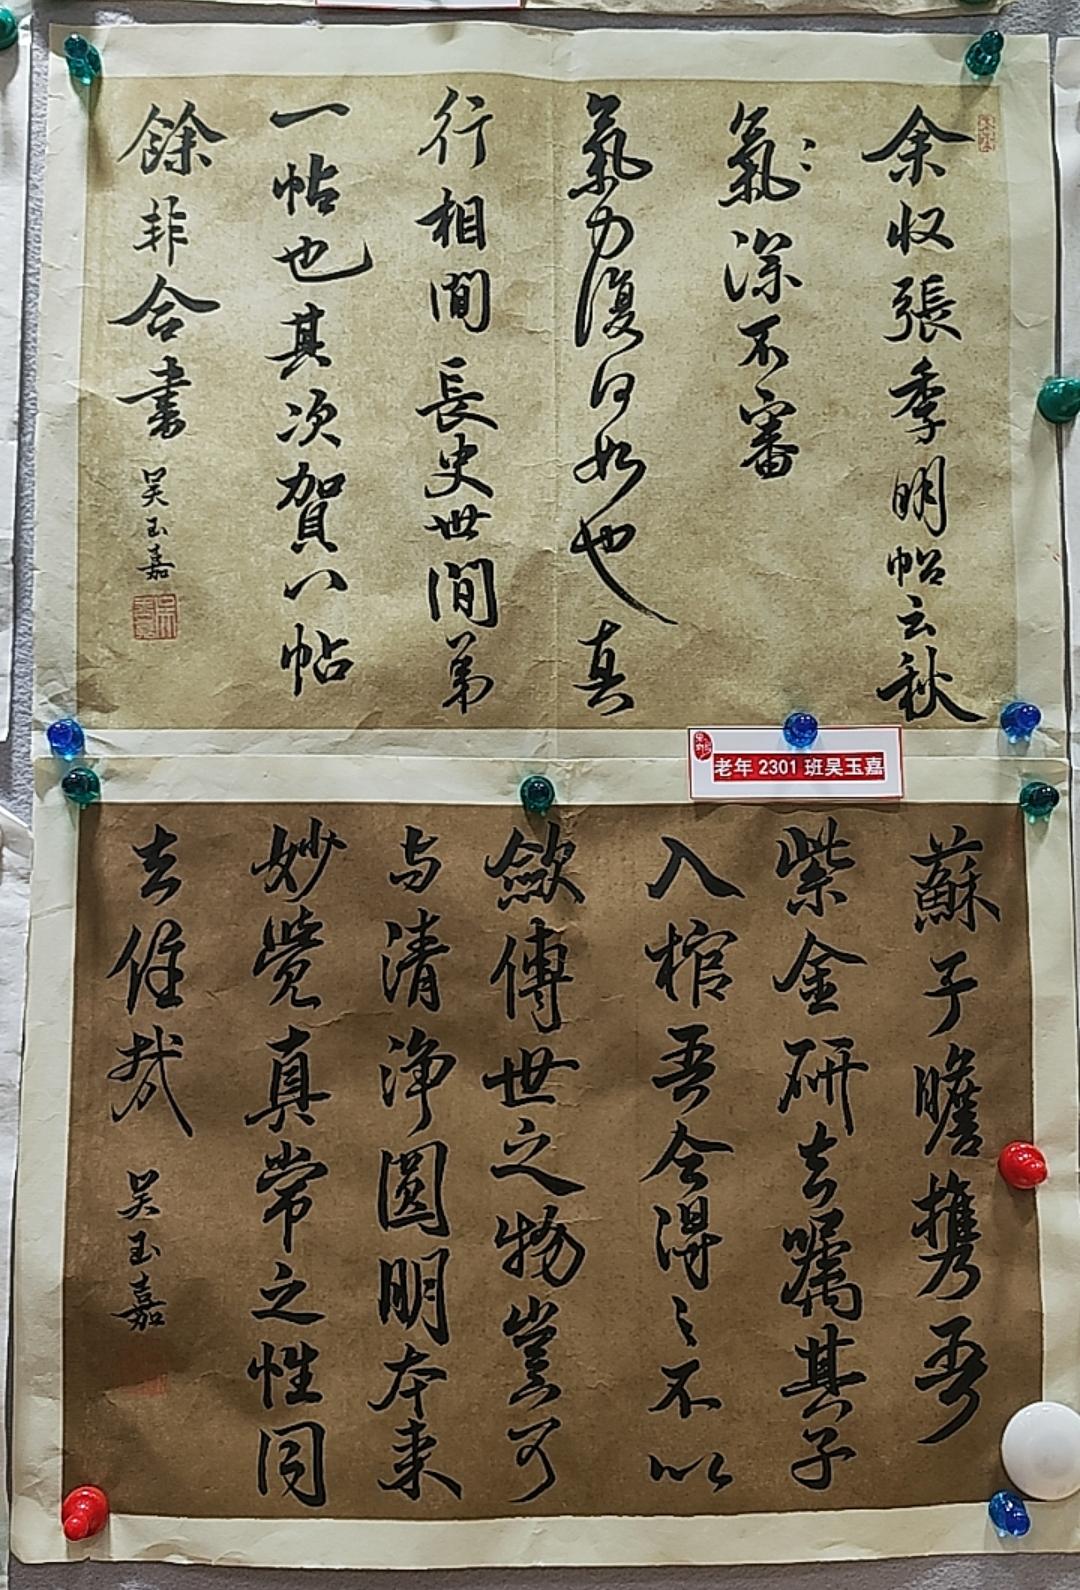 余収張季明帖云秋
氣〻深不審
氣力復何如也真
行相間長史世間第
一帖也其次賀八帖
餘非合書
吴玉嘉
老年2301班吴玉嘉
蘇子瞻携吾
紫金研去嘱其子
入棺吾今得〻不以
歛傳世之物豈可
与清淨圓明本来
妙覺真常之性同
去住哉
吴玉嘉